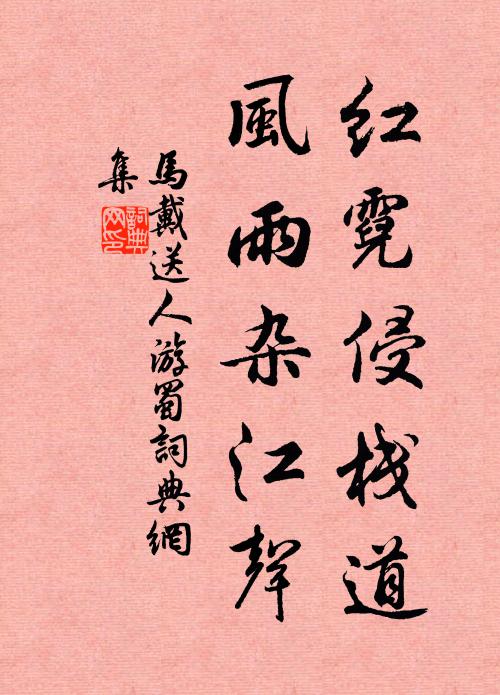 红霓侵栈道
風雨杂江聲
馬戴送人游蜀詞典網
集
詞典
网印